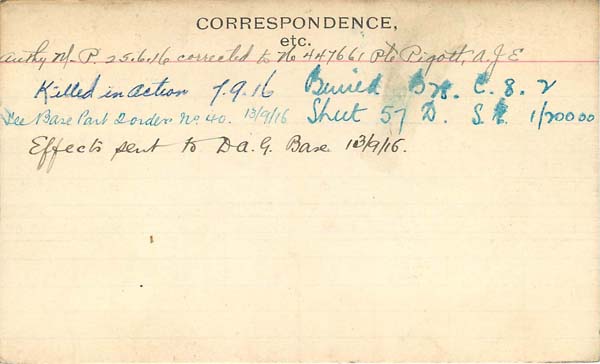 CORRESPONDENCE,
etc.
Authy M. P. 25.6.16 corrected to No 447661 Pte Pigott, A. J. E
Killed in action 7.9.16 Buried B28. C. 8. 2
See Base Part 2 order No. 40. 13/9/16 Sheet 57 D. S.E. 1/20000
Effects sent to D.A.G. Base 13/9/16.